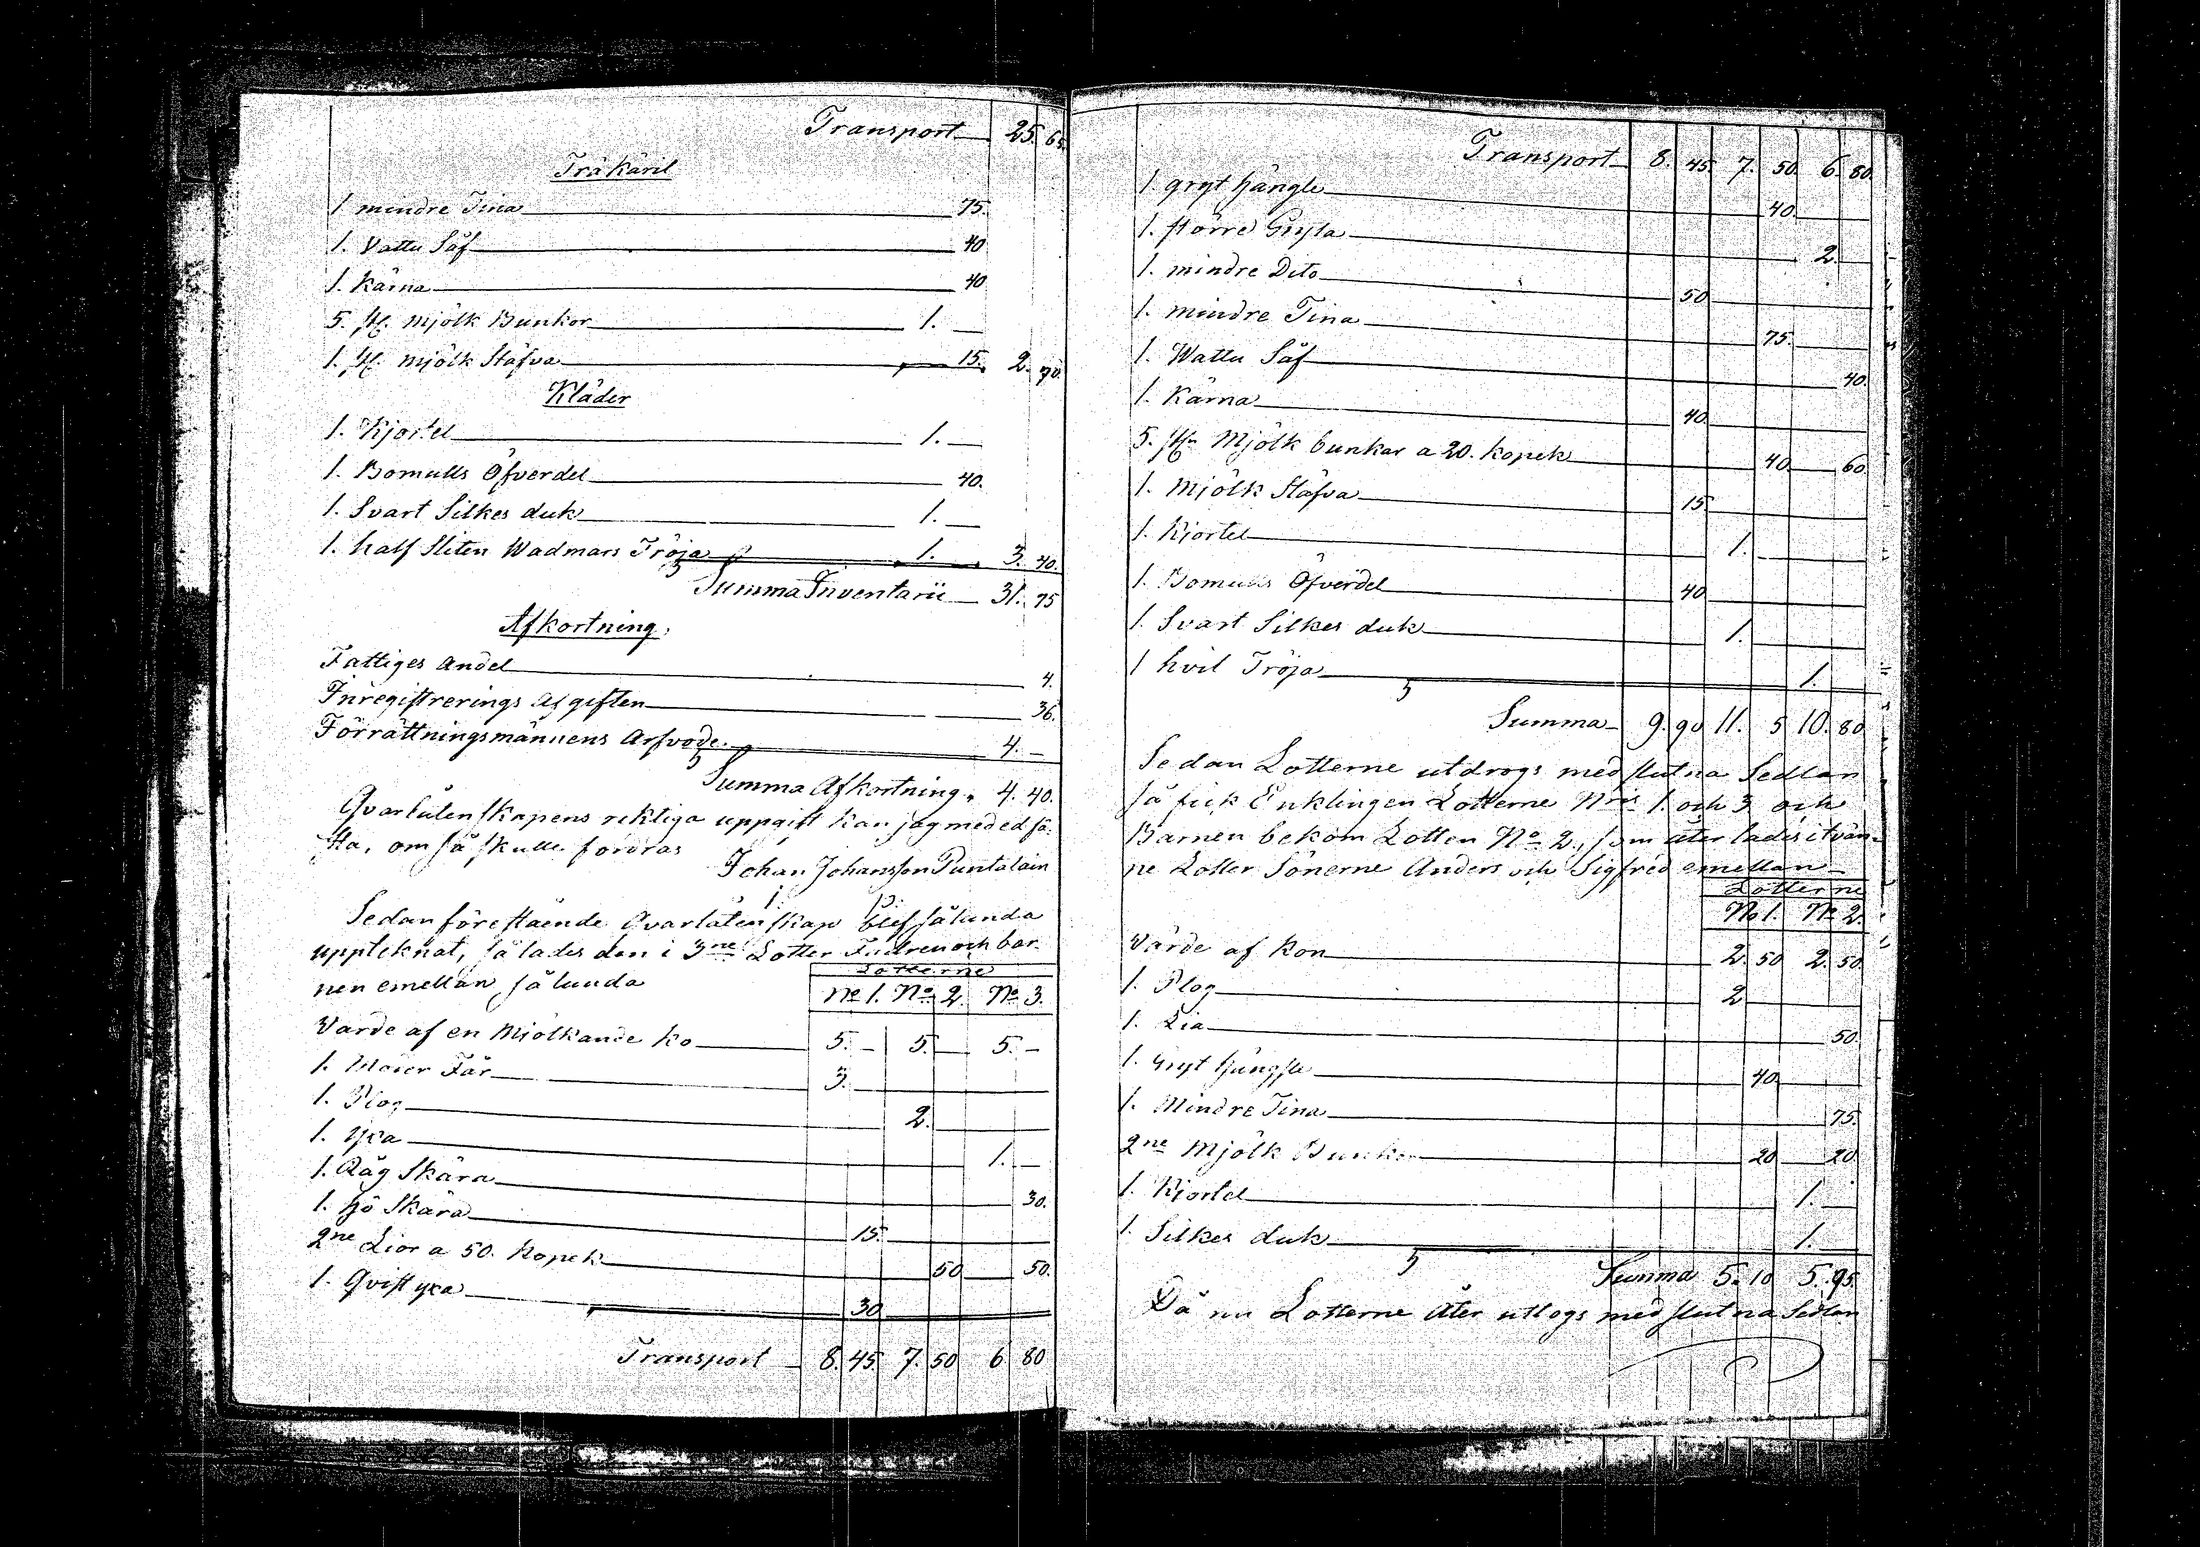 Transport 25. 65.
Träkäril
1 mindre Tina 75.
1. Vattu Såf 40
1. Kärna 40
5. st. mjölk Bunkor 1. —
1. st. mjölk Stäfva 15. 2. 70.
Kläder
1. Kjortel 1. —
1. Bomulls Öfverdel 40.
1. Svart Silkes duk 1. —
1. half sliten Wadmars Tröja 1. 3. 40.
Summa Inventarii 31. 75
Afkortning.
Fattiges andel 4.
Inregistrerings afgiften 36.
Förrättningsmännens Arfvode 4. —
Summa Afkortning. 4. 40.
Qvarlåtenskapens riktiga uppgift kan jag med ed fä-
sta, om så skulle fordras
Johan Johansson Puntalain
Sedan förestående Qvarlåtenskap blef sålunda
uppteknat, så lades den i 3ne Lotter Fadren och bar-
nen emellan sålunda
Lotterne
No 1. No 2. No 3.
Värde af en Mjölkande ko 5. — 5. — 5. —
1. Får 3. —
1. Plog 2.
1. Yxa 1. —
1. Råg Skära 30.
1. hö Skära 15.
2ne Lior a 50. Kopek 50 50.
1. Qvist yxa 30
Transport 8. 45. 7. 50 6 80
Transport 8. 45. 7. 50. 6. 80.
1. gryt hängle 40.
1. större Gryta 2.
1. mindre Dito 50
1. mindre Tina 75.
1. Wattu Såf 40.
1. Kärna 40.
5. Mjölk bunkar a 20. kopek 40 60.
1. Mjölk Stäfva 15
1. Kjortel 1. —
1. Bomulls Öfverdel 40
1. Svart Silkes duk 1.
1 Tröja 1.
Summa 9. 90 11. 5 10. 80
Sedan Lotterne utdrogs med slutna Sedlan
så fick Enklingen Lotterne Nris 1. och 3 och
Barnen bekom Lotten No 2., som åter lades i tvän-
ne Lotter Sönerne Anders och Sigfred emellan
Lotterne
No 1. No 2.
Värde af kon 2. 50 2. 50.
1. Plog 2
1. Lia 50
1. Gryt 40
1. Mindre Tina 75.
2ne Mjölk 20 20.
1. Kjortel 1. —
1. Silkes duk 1.
Summa 5. 10 5. 95
Då nu Lotterne åter uttogs med slutna Sedlan